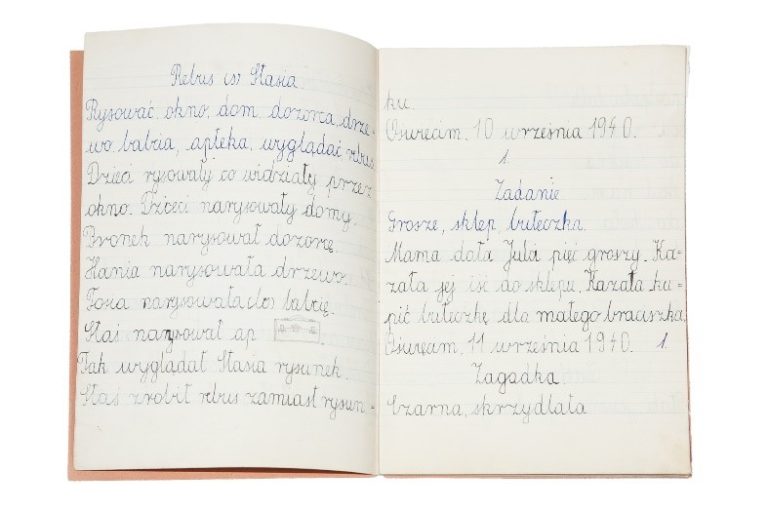 Rebus Stasia
Rysować okno, dom dozorca, drze-
wo babcia, apteka, wyglądać rebus
Dzieci rysowały co widziały przez
okno. Dzieci narysowały domy.
Bronek narysował dozorcę.
Hania narysowała drzewo.
Tosia narysowała babcię.
Staś narysował ap
Tak wyglądał Stasia rysunek.
Staś zrobił rebus zamiast rysun-
ku.
Oświęcim, 10 września 1940.
1.
Zadanie
Grosze, sklep, bułeczka
Mama dała Juli pięć groszy. Ka-
zała jej iść do sklepu. Kazała ku-
pić bułeczkę dla małego braciszka.
Oświęcim, 11 września 1940. 1.
Zagadka
Czarna, skrzydlata